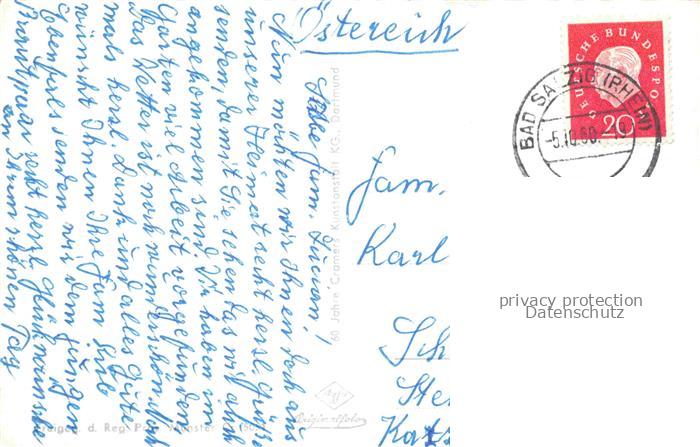 Österreich
Liebe Fam.
Nun möchten wir Ihnen doch aus
unserer Heimat recht herzl. Grüße
senden, damit Sie sehen das wir auch
angekommen sind. Wir haben im
Garten viel Arbeit vorgefunden.
Das Wetter ist noch wunderschön. Noch
mals herzl. Dank und alles Gute
wünscht Ihnen Ihre Fam.
Ebenfalls senden wir dem jungen
Brautpaar recht herzl. Glückwünsche
am schönen Tag
Fam.
Karl
Sch
Ste
60 Jahre Cramers Kunstanstalt KG, Dortmund
Agfa
Originalfoto
Freigeg. d. Reg. Präs. Münster
DEUTSCHE BUNDESPO
20
BAD SALZIG (RHEIN)
-5.10.60
privacy protection
Datenschutz